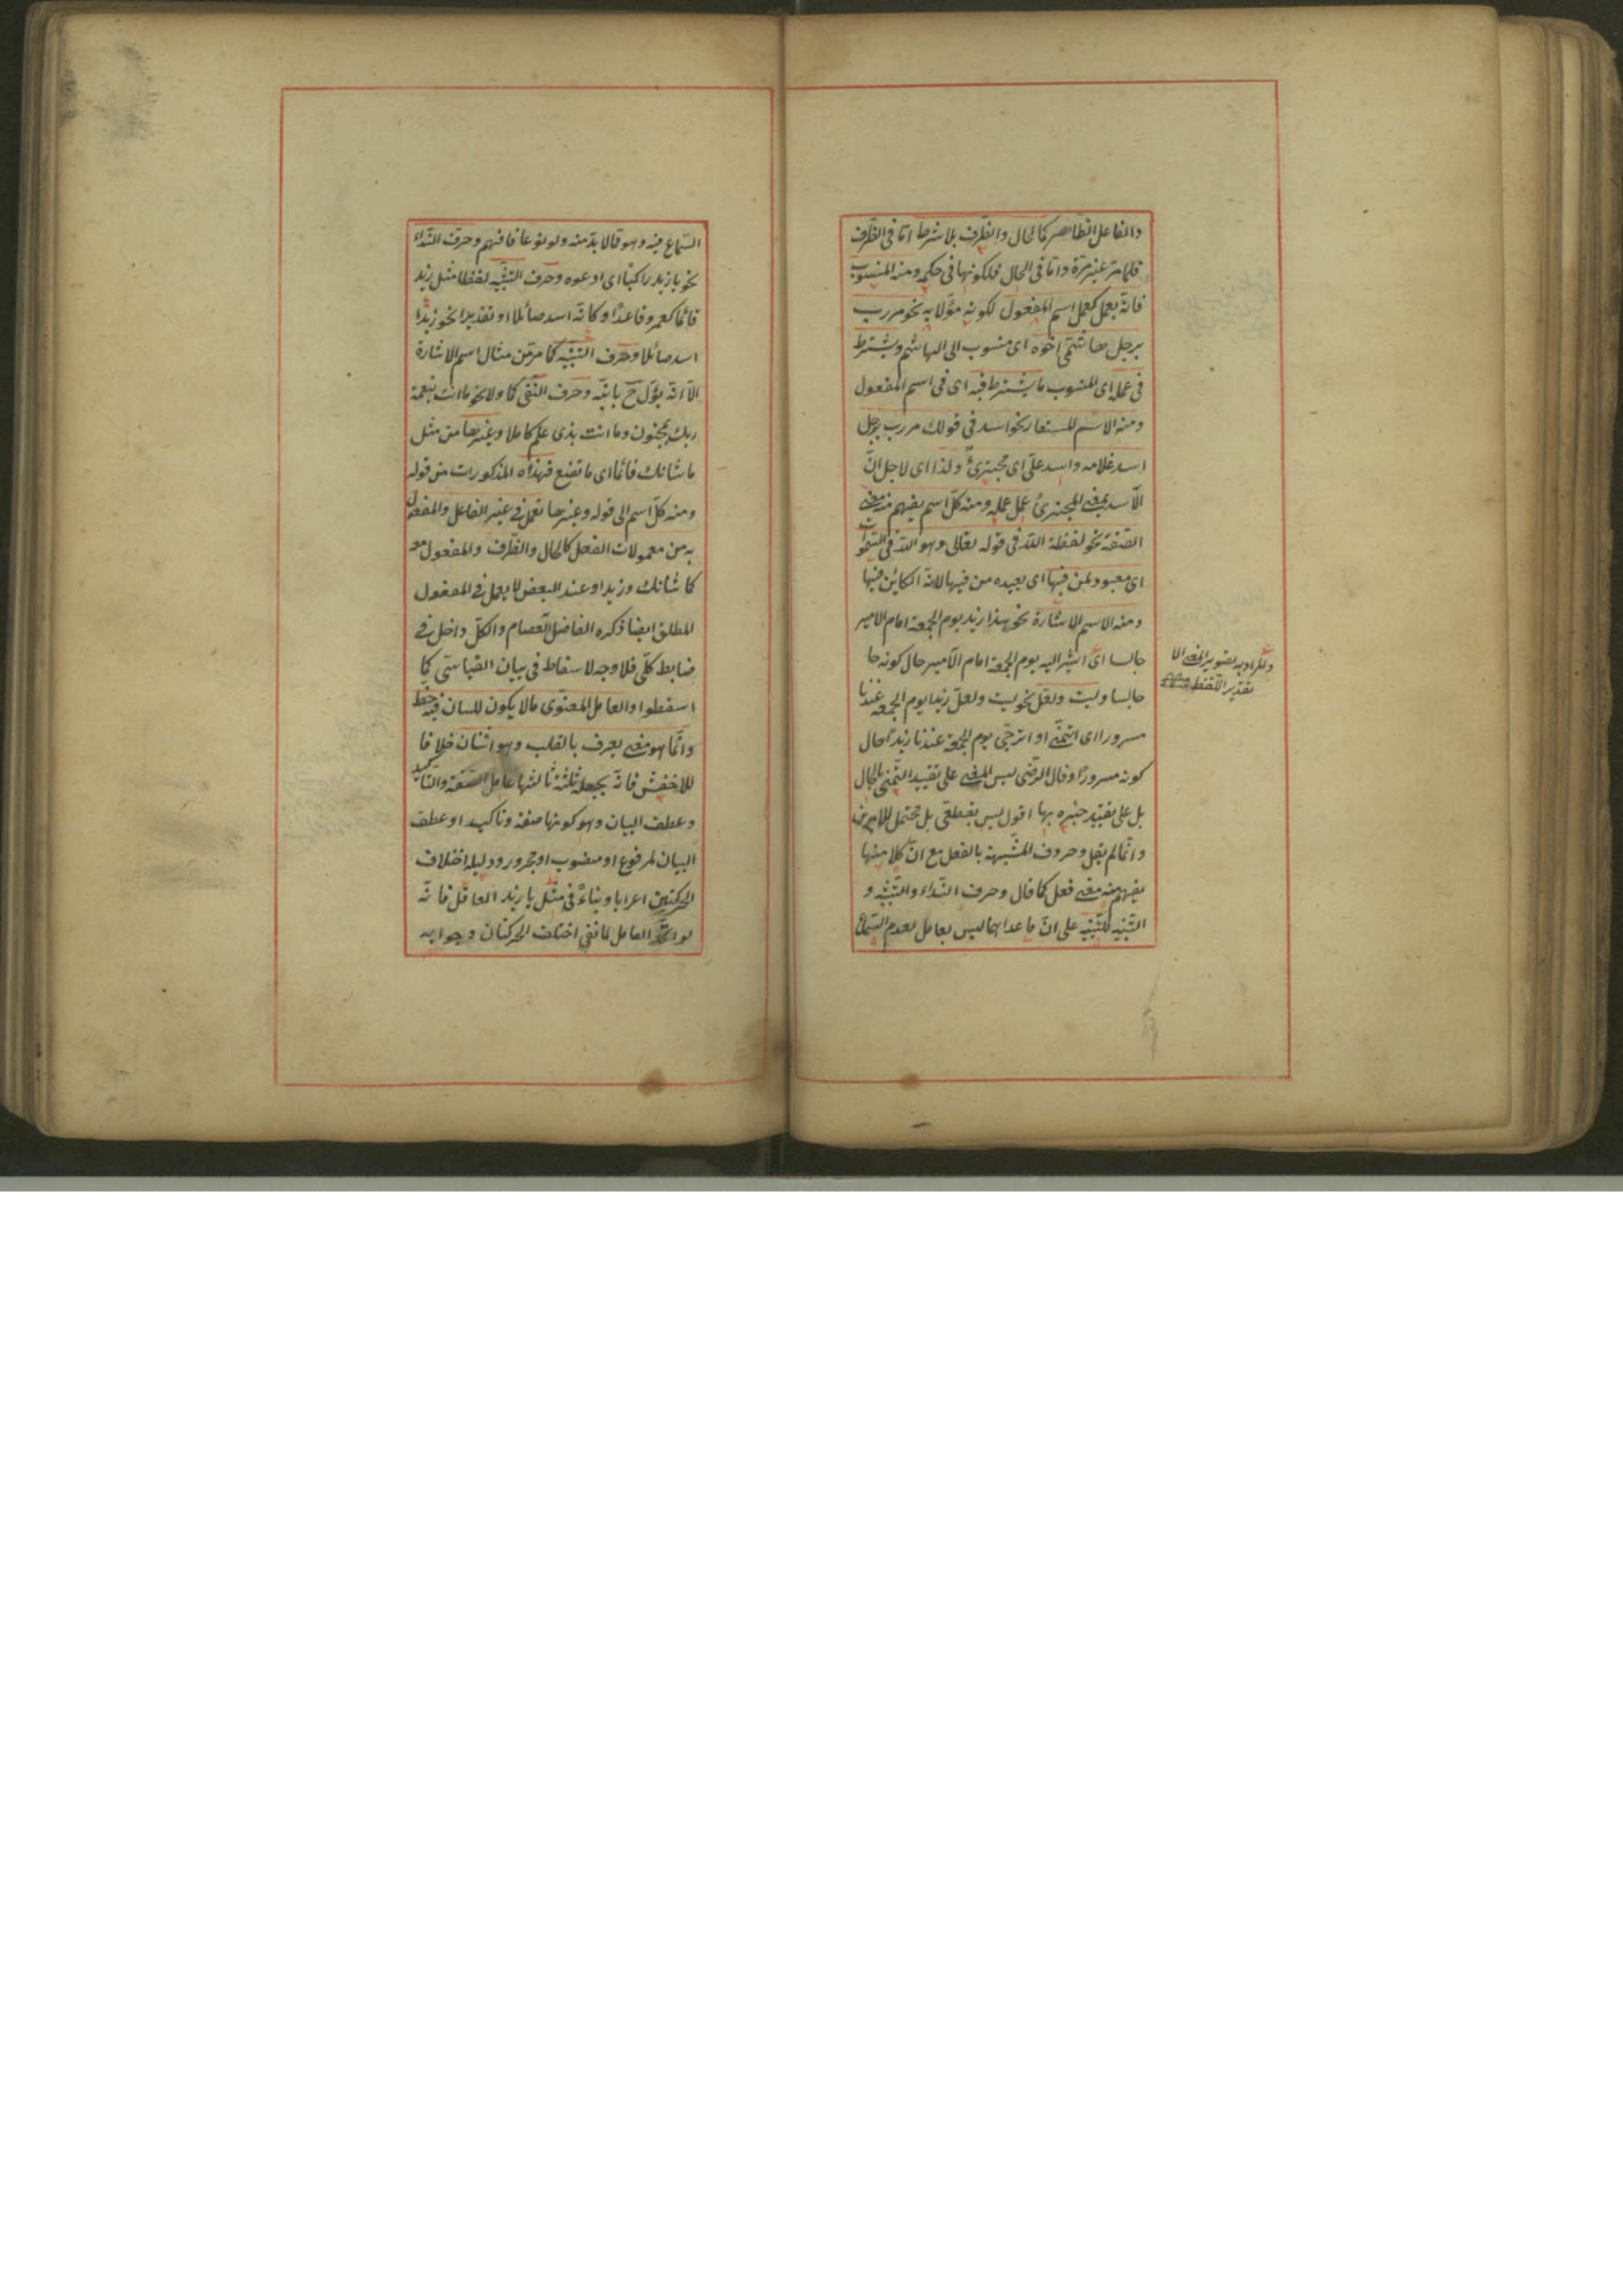 والفاعل الظاهر كالحال والظرف بلا شرط اما فى الظرف
فلما مر غير مرة واما فى الحال فلكونها فى حكمه ومنه المنسوب
فانه يعمل كعمل اسم المفعول لكونه مؤلا به نحو مررت
برجل هاشمى اخوه اى منسوب الى الهاشم ويشترط
فى عمله اى المنسوب ما يشترط فيه اى فى اسم المفعول
ومنه الاسم المستعار نحو اسد فى قولك مررت برجل
اسد غلامه واسد على اى مجترئ ولذا اى لاجل ان
الاسد بمعنى المجترئ عمل عمله ومنه كل اسم يفهم منه معنى
الصفة نحو لفظة الله فى قوله تعالى وهو الله فى السموات
اى معبود لمن فيها اى يعبده من فيها لانه الكاين فيها
ومنه الاسم الاشارة نحو هذا زيد يوم الجمعة امام الامير
جالسا اى اشير اليه يوم الجمعة امام الامير حال كونه جا
جالسا وليت ولعل نحو ليت ولعل زيدا يوم الجمعة عندنا
مسرورا اى اتمنى او اترجى يوم الجمعة عندنا زيدا حال
كونه مسرورا وقال الرضى ليس المعنى على تقييد التمنى بالحال
بل على تقييد خبره بها اقول ليس بقطعى بل محتمل للامرين
وانما لم يقل وحروف المشبهة بالفعل مع ان كلا منها
يفهم منه معنى فعل كما قال وحرف النداء والتنبيه و
التنبيه للتنبيه على ان ما عداهما ليس بعامل لعدم السماع
والمراد به تصوير المعنى لا
تقدير اللفظ
السماع فيه وهو مما لا بد منه ولو نوعا فافهم وحرف النداء
نحو يا زيد راكبا اى ادعوه وحرف التشبيه لفظا مثل زيد
قائما كعمرو قاعدا وكانه اسد صائلا او تقديرا نحو زيد
اسد صائلا وحرف التنبيه كما مر من مثال اسم الاشارة
الا انه يؤل ح بانبه وحرف النفى كما ولا نحو ما انت بنعمة
ربك بمجنون وما انت بذى علم كاملا وغيرها من مثل
ما شانك قائما اى ما تصنع فهذه المذكورات من قوله
ومنه كل اسم الى قوله وغيرها تعمل فى غير الفاعل والمفعول
به من معمولات الفعل كالحال والظرف والمفعول معه
كما شانك وزيدا وعند البعض لا يعمل فى المفعول
المطلق ايضا ذكره الفاضل العصام والكل داخل فى
ضابط كلى فلا وجه لاسقاط فى بيان القياسى كما
اسقطوا والعامل المعنوى ما لا يكون للسان فيه حظ
وانما هو معنى يعرف بالقلب وهو اثنان خلافا
للاخفش فانه يجعله ثلثة ثالثها عامل الصفة والتاكيد
وعطف البيان وهو كونها صفة وتاكيد او عطف
البيان لمرفوع او منصوب او مجرور ودليله اختلاف
الحركتين اعرابا وبناء فى مثل يا زيد العاقل فانه
لو اتحد العامل لما نفى اختلف الحركتان وجوابه